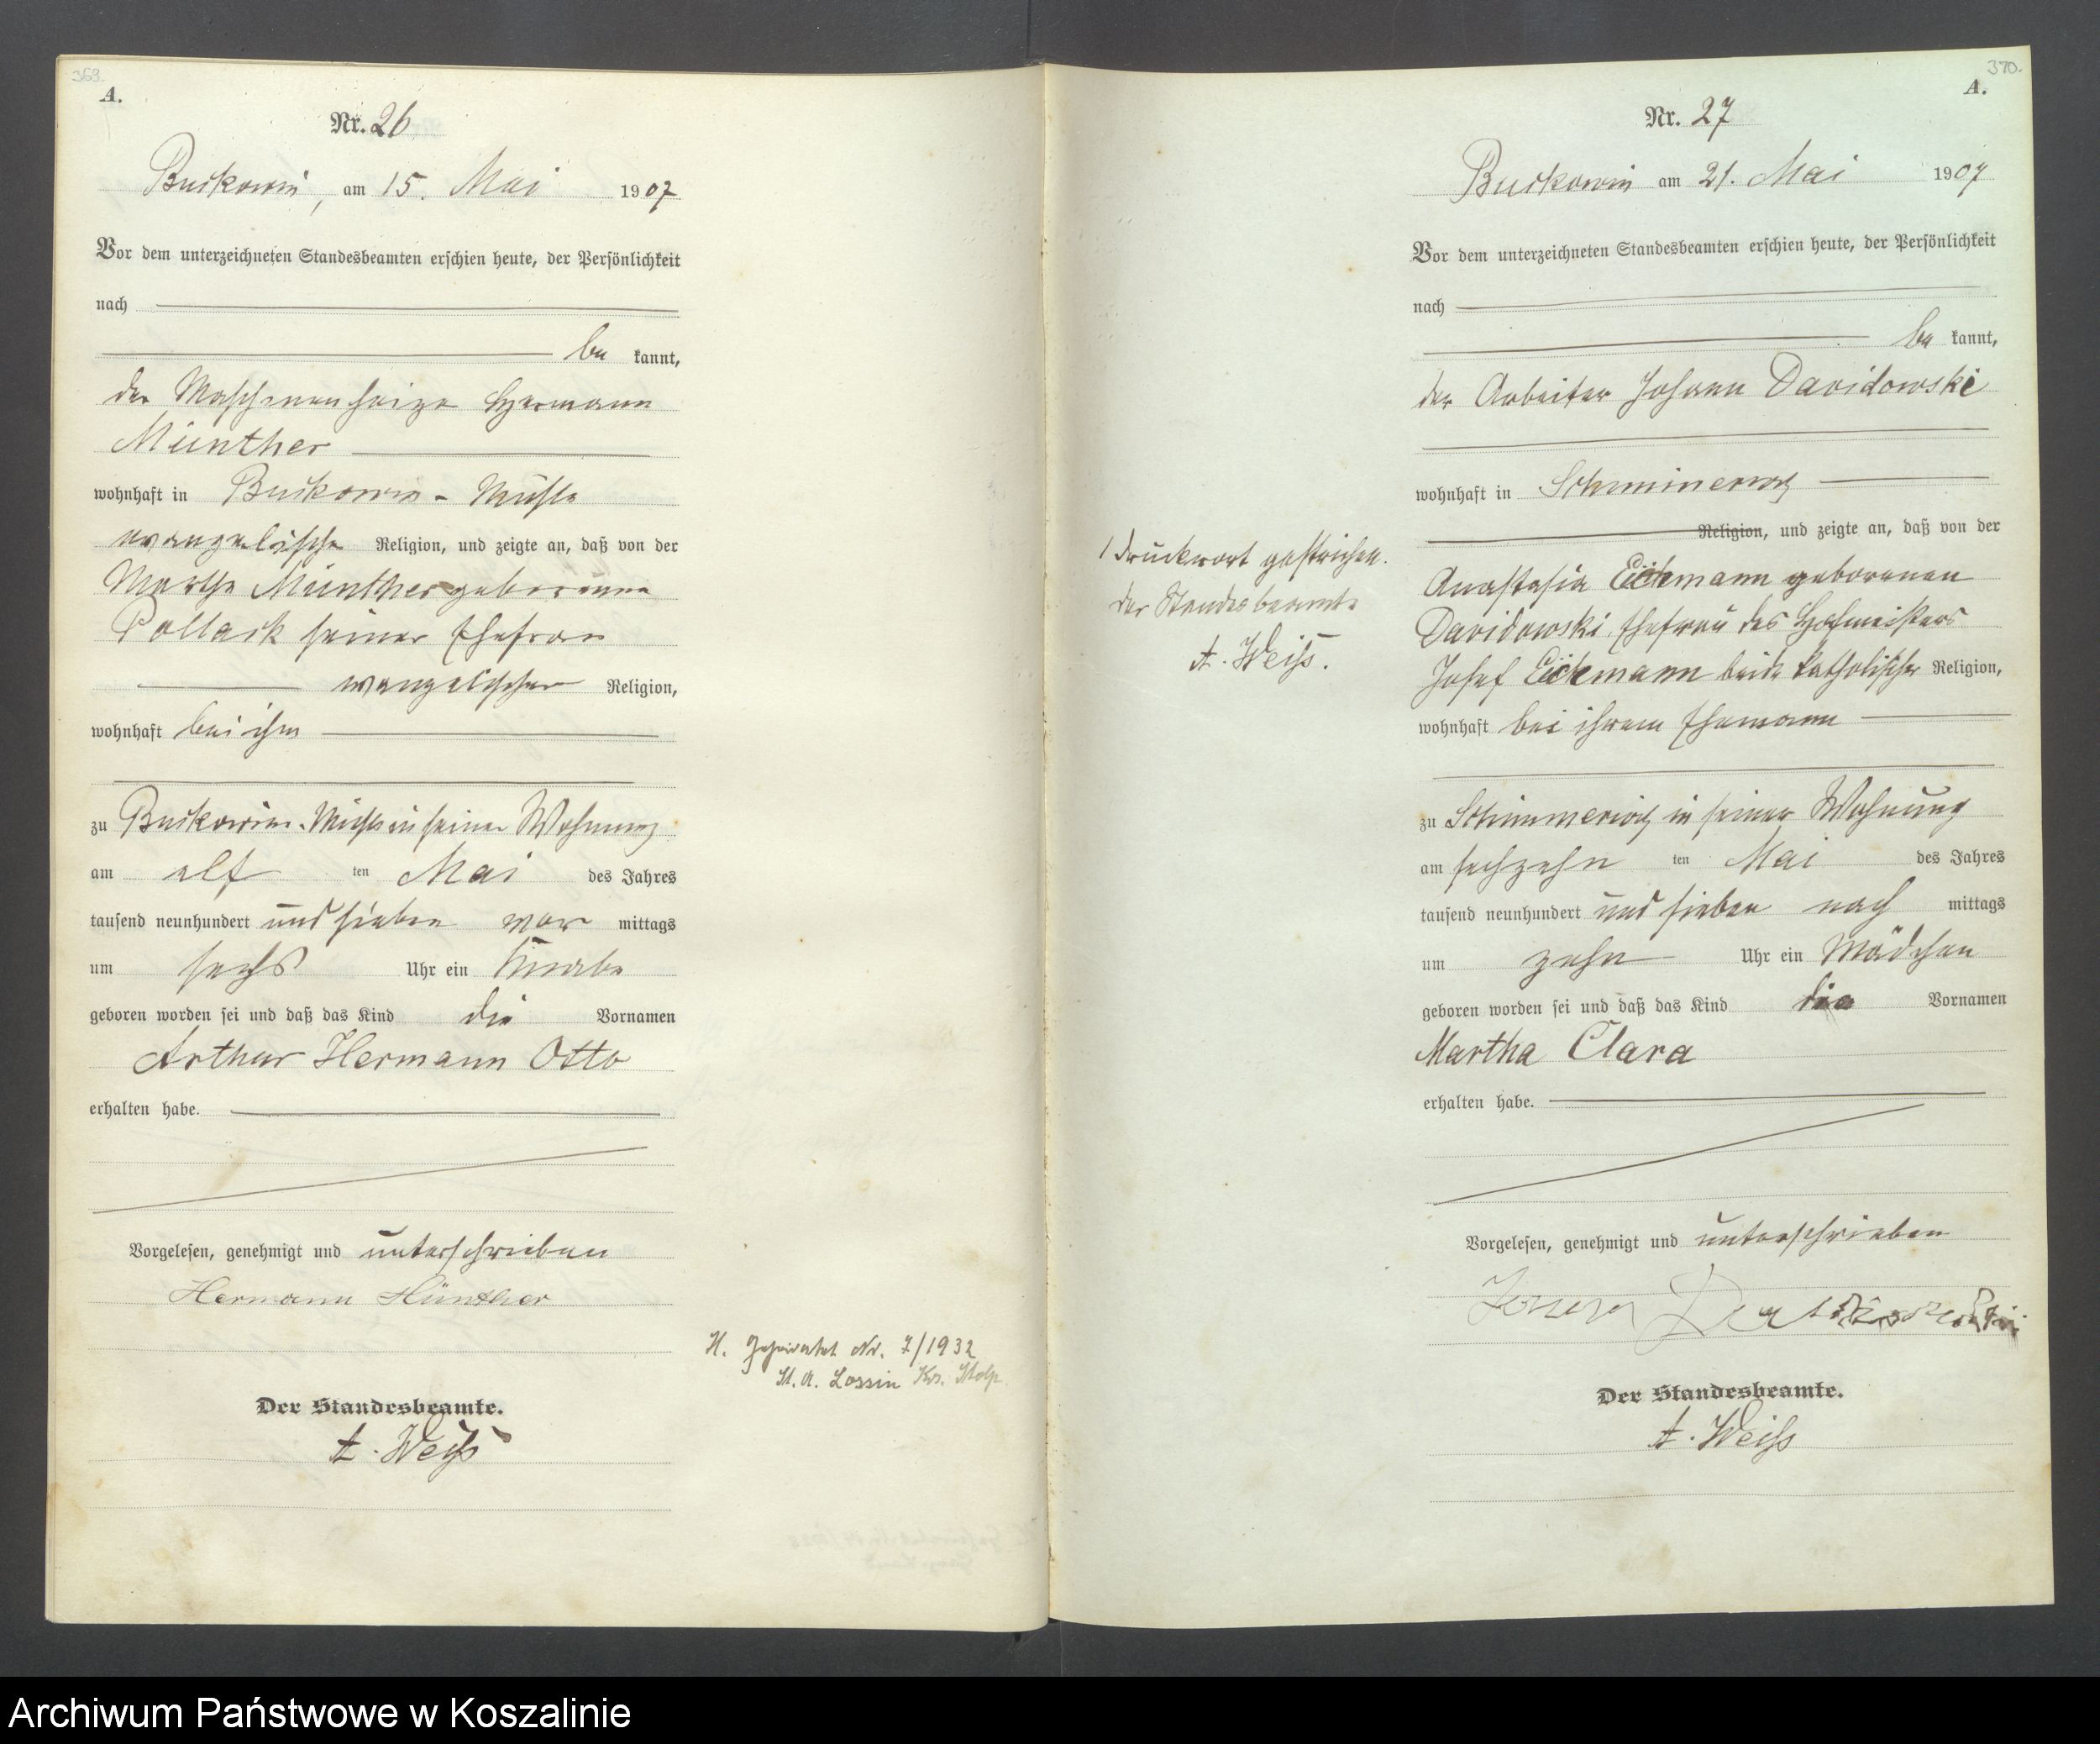 369.
A.
Nr. 26
Buckowin, am 15. Mai 1907
Vor dem unterzeichneten Standesbeamten erschien heute, der Persönlichkeit
nach
be kannt,
der Maschinenheizer Hermann
Münther
wohnhaft in Buckowin - Mühle
evangelischer Religion, und zeigte an, daß von der
Martha Münther geborenen
Pollack seiner Ehefrau
evangelischer Religion,
wohnhaft bei ihm
zu Buckowin-Mühle in seiner Wohnung
am elf ten Mai des Jahres
tausend neunhundert und sieben vor mittags
um sechs Uhr ein Knabe
geboren worden sei und daß das Kind die Vornamen
Arthur Hermann Otto
erhalten habe.
Vorgelesen, genehmigt und unterschrieben
Hermann Münther
Der Standesbeamte.
A. Weiß
H. Geheiratet Nr. 7/1932
St. A. Lossin Krs. Stolp
370.
A.
Nr. 27
Buckowin am 21. Mai 1907
Vor dem unterzeichneten Standesbeamten erschien heute, der Persönlichkeit
nach
be kannt,
der Arbeiter Johann Davidowski
wohnhaft in Schimmerwitz
Religion, und zeigte an, daß von der
Anastasia Eickmann geborenen
Davidowski, Ehefrau des Hofmeisters
Josef Eickmann beide katholischer Religion,
wohnhaft bei ihrem Ehemann
zu Schimmerwitz in seiner Wohnung
am sechzehn ten Mai des Jahres
tausend neunhundert und sieben nach mittags
um zehn Uhr ein Mädchen
geboren worden sei und daß das Kind die Vornamen
Martha Clara
erhalten habe.
Vorgelesen, genehmigt und unterschrieben
Der Standesbeamte.
A. Weiß
1 Druckwort gestrichen.
Der Standesbeamte
A. Weiß.
Archiwum Państwowe w Koszalinie